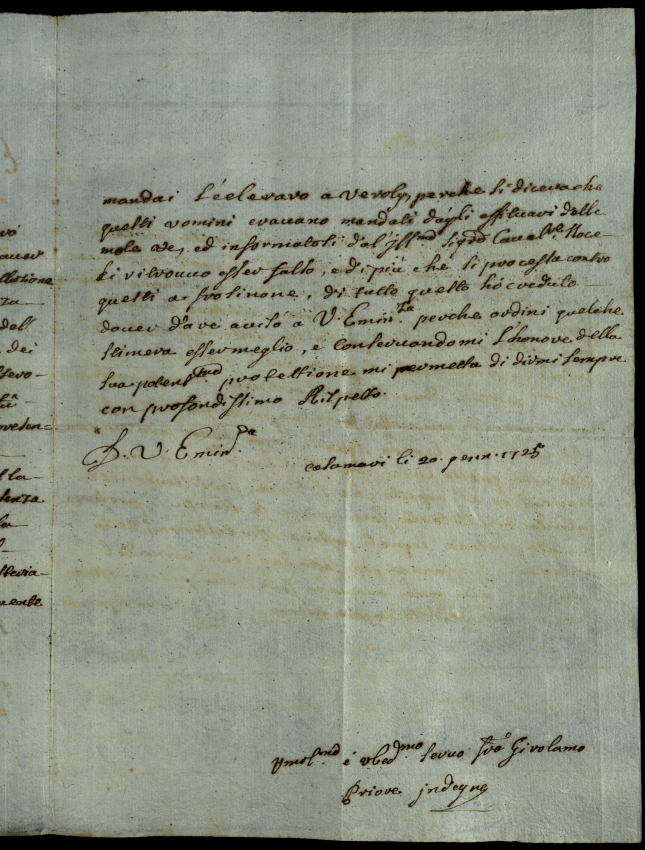 vó
mandai l'eclevavo a Veroly, perche si diceva che
quelli vomini eravano mandati dagli affittuavi delle
mole &c, ed informatosi dal Ill.mo sig.re Cavali.re Noce-
ti ritrovuo esser falso, e di più che si processa contro
quelli a frosinone, di tutto questo hò creduto
dover dare aviso à V. Emin.za perche ordini quel che
stimera esser meglio, e conservandomi l'honore della
sua potentis.ma protettione mi permetta di dirmi sempre
con profondissimo Rispetto.
D. V. Emin.za
casamari li 20. genn. 1725
dell
dei
la
lenza
uente
Umol.mo é vbed.mo servo frà Girolamo
Priore indegno